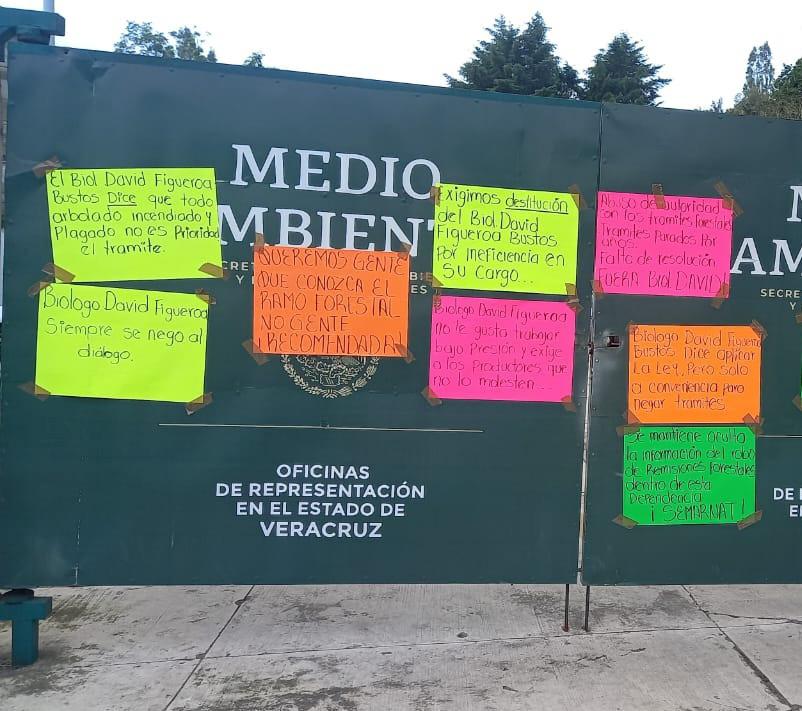 MEDIO
AMBIENT
SECRE
Y
BIE
ES
El Biol David Figueroa
Bustos Dice que todo
arbolado incendiado y
Plagado no es Prioridad
el tramite.
Biologo David Figueroa
Siempre se nego al
diálogo.
QUEREMOS GENTE
QUE CONOZCA EL
RAMO FORESTAL
NO GENTE
¡RECOMENDADA!
Exigimos destitución
del Biol David
Figueroa Bustos
Por ineficiencia en
Su Cargo...
Biologo David Figueroa
no le gusta trabajar
bajo Presión y exige
a los productores que
no lo molesten...
OFICINAS
DE REPRESENTACIÓN
EN EL ESTADO DE
VERACRUZ
Abuso de autoridad
son los tramites forestales
Tramites Parados Por
años.
Falta de resolución.
FUERA Biol DAVID!
Biologo David Figueroa
Bustos Dice aplicar
La Ley, Pero solo
a conveniencia para
negar tramites
Se mantiene oculto
la información del robo
de Remisiones forestales
dentro de esta
Dependencia
¡SEMARNAT!
M
AM
SECRE
Y
DE
E